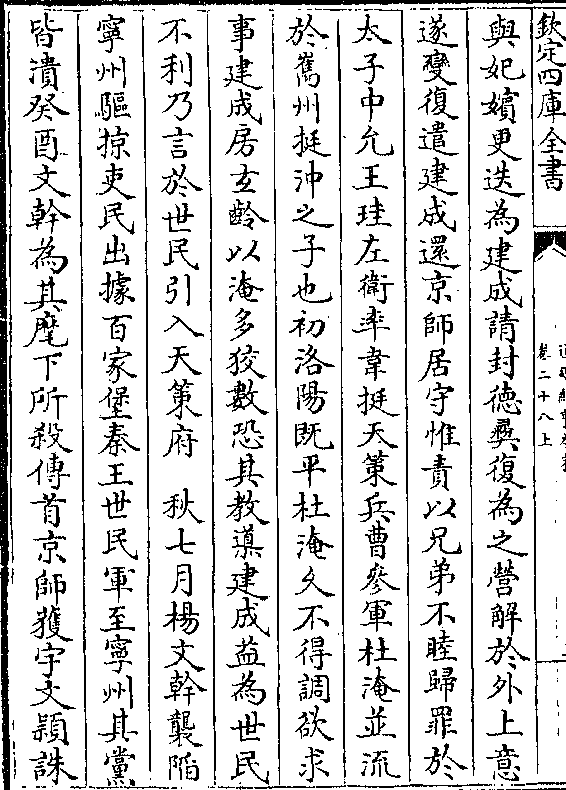 欽定四庫全書
卷二十八上
與妃嬪更迭為建成請封德彞復為之營解於外上意
遂變復遣建成還京師居守惟責以兄弟不睦歸罪於
太子中允王珪左衛率韋挺天策兵曹參軍杜淹並流
於雟州挺沖之子也初洛陽既平杜淹久不得調欲求
事建成房玄齡以淹多狡數恐其教導建成益為世民
不利乃言於世民引入天策府 秋七月楊文幹襲陷
寧州驅掠吏民出據百家堡秦王世民軍至寧州其黨
皆潰癸酉文幹為其麾下所殺傳首京師獲宇文頴誅